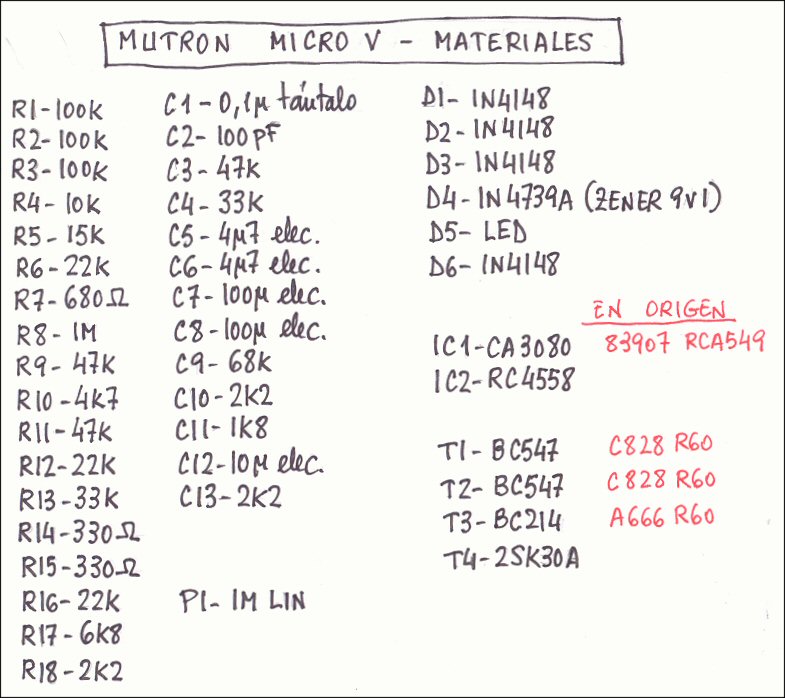 MUTRON MICRO V - MATERIALES
R1-100K
R2-100K
R3-100K
R4-10K
R5-15K
R6-22K
R7-680Ω
R8-1M
R9-47K
R10-4K7
R11-47K
R12-22K
R13-33K
R14-330Ω
R15-330Ω
R16-22K
R17-6K8
R18-2K2
C1-0,1µ tántalo
C2-100pF
C3-47K
C4-33K
C5-4µ7 elec.
C6-4µ7 elec.
C7-100µ elec.
C8-100µ elec.
C9-68K
C10-2K2
C11-1K8
C12-10µ elec.
C13-2K2
P1-1M LIN
D1-1N4148
D2-1N4148
D3-1N4148
D4-1N4739A (ZENER 9V1)
D5-LED
D6-1N4148
EN ORIGEN
IC1-CA3080 83907 RCA549
IC2-RC4558
T1-BC547 C828 R60
T2-BC547 C828 R60
T3-BC214 A666 R60
T4-2SK30A